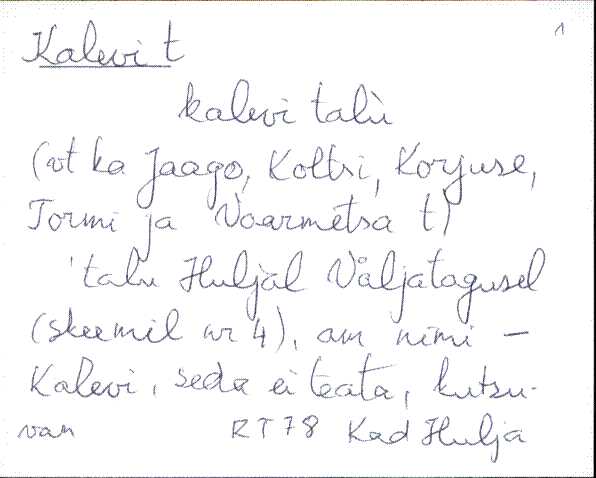 1
Kalevi t
kalevi talù
(vt ka Jaago, Koltsi, Korjuse,
Tormi ja Voarmetsa t)
'talu Huljal Väljatagusel
(skeemil nr 4), am nimi –
Kalevi, seda ei teata, kutsu-
van RT78 Kad Hulja